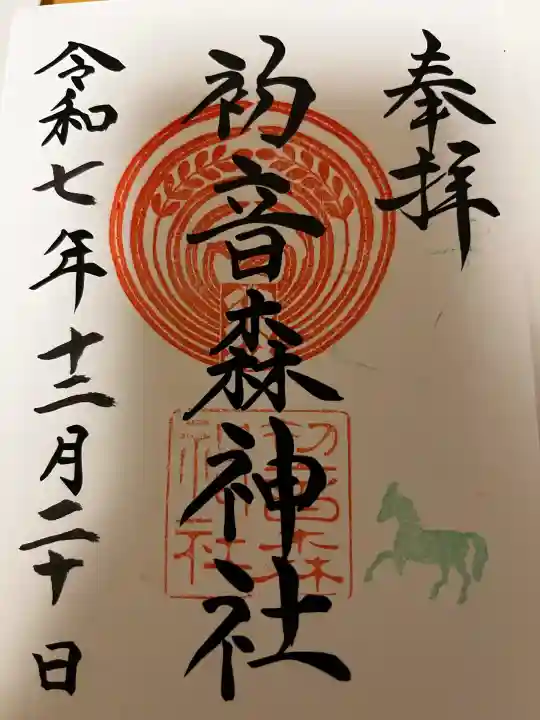 奉拝
初音森神社
令和七年十二月二十日
初音森
神社